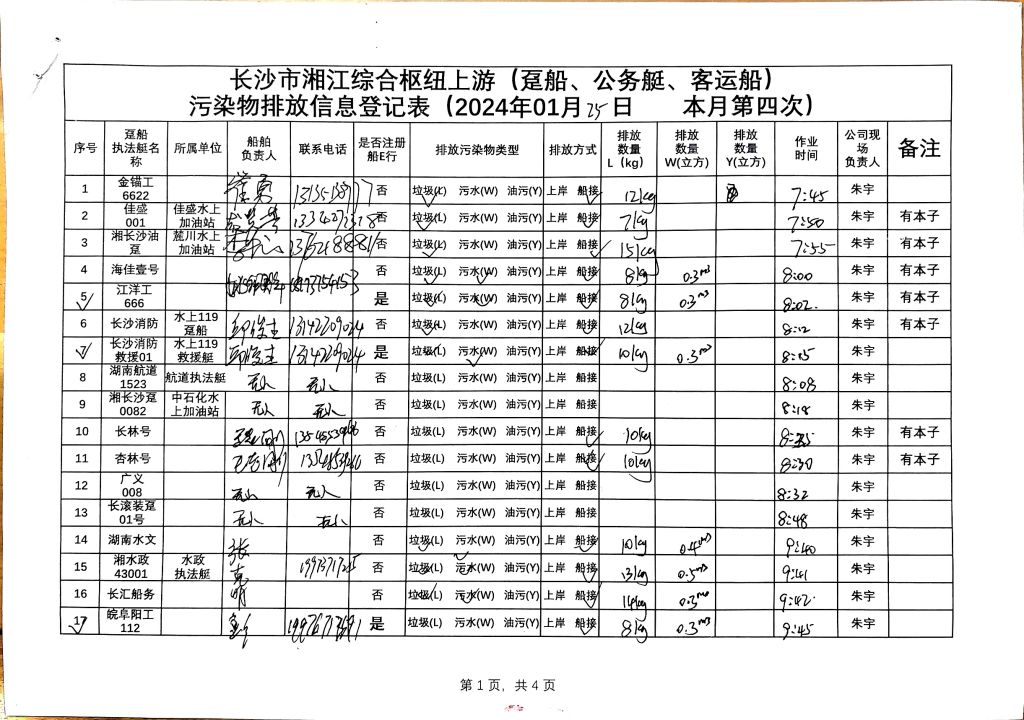 长沙市湘江综合枢纽上游（趸船、公务艇、客运船）
污染物排放信息登记表（2024年01月25日 本月第四次）
序号 趸船执法艇名称 所属单位 船舶负责人 联系电话 是否注册船E行 排放污染物类型 排放方式 排放数量L（kg） 排放数量W(立方) 排放数量Y(立方) 作业时间 公司现场负责人 备注
1 金锚工6622 否 垃圾(L) 污水(W) 油污(Y) 上岸 船接 12kg 7:45 朱宇
2 佳盛001 佳盛水上加油站 否 垃圾(L) 污水(W) 油污(Y) 上岸 船接 7kg 7:50 朱宇 有本子
3 湘长沙油趸 麓川水上加油站 否 垃圾(L) 污水(W) 油污(Y) 上岸 船接 15kg 7:55 朱宇 有本子
4 海佳壹号 否 垃圾(L) 污水(W) 油污(Y) 上岸 船接 8kg 0.3m3 8:00 朱宇 有本子
5 江洋工666 是 垃圾(L) 污水(W) 油污(Y) 上岸 船接 8kg 0.3m3 8:02 朱宇 有本子
6 长沙消防 水上119趸船 否 垃圾(L) 污水(W) 油污(Y) 上岸 船接 12kg 8:12 朱宇 有本子
7 长沙消防救援01 水上119救援艇 是 垃圾(L) 污水(W) 油污(Y) 上岸 船接 10kg 0.3m3 8:15 朱宇
8 湖南航道1523 航道执法艇 无人 无人 否 垃圾(L) 污水(W) 油污(Y) 上岸 船接 8:08 朱宇
9 湘长沙趸0082 中石化水上加油站 无人 无人 否 垃圾(L) 污水(W) 油污(Y) 上岸 船接 8:18 朱宇
10 长林号 否 垃圾(L) 污水(W) 油污(Y) 上岸 船接 10kg 朱宇 有本子
11 杏林号 否 垃圾(L) 污水(W) 油污(Y) 上岸 船接 10kg 8:30 朱宇 有本子
12 广义008 无人 无人 否 垃圾(L) 污水(W) 油污(Y) 上岸 船接 8:32 朱宇
13 长滚装趸01号 无人 无人 否 垃圾(L) 污水(W) 油污(Y) 上岸 船接 8:48 朱宇
14 湖南水文 张 否 垃圾(L) 污水(W) 油污(Y) 上岸 船接 10kg 0.4m3 9:40 朱宇
15 湘水政43001 水政执法艇 克 否 垃圾(L) 污水(W) 油污(Y) 上岸 船接 13kg 0.5m3 9:41 朱宇
16 长汇船务 明 否 垃圾(L) 污水(W) 油污(Y) 上岸 船接 14kg 0.3m3 9:42 朱宇
17 皖阜阳工112 是 垃圾(L) 污水(W) 油污(Y) 上岸 船接 8kg 0.3m3 9:45 朱宇
第 1 页，共 4 页